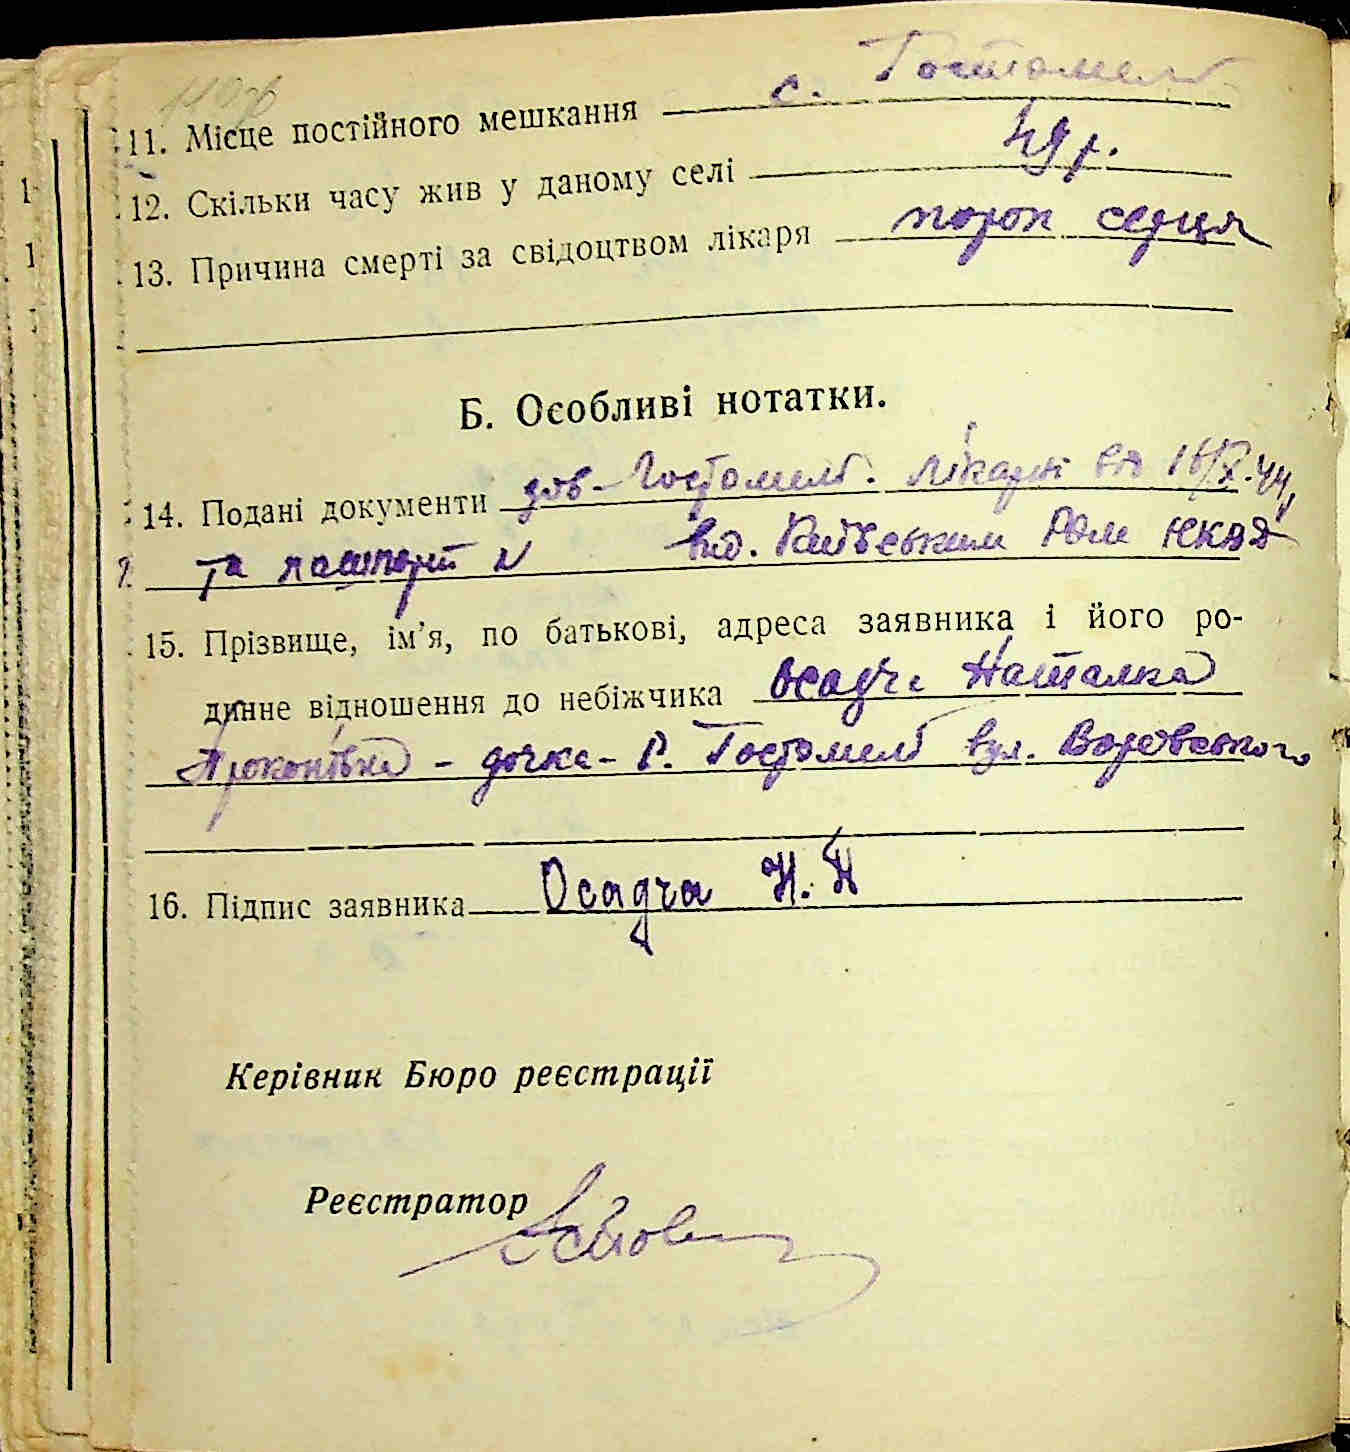 11. Місце постійного мешкання с. Гостомель
12. Скільки часу жив у даному селі 49 р.
13. Причина смерті за свідоцтвом лікаря порок серця
Б. Особливі нотатки.
14. Подані документи дов. Гостомель. лікарні від 16/X.44
та пашпорт N вид. Київським РОМ НКВД
15. Прізвище, ім’я, по батькові, адреса заявника і його ро-
динне відношення до небіжчика Осадча Наталка
Прокопівна - дочка - с. Гостомель вул. Воровського
16. Підпис заявника Осадча Н. П
Керівник Бюро реєстрації
Реєстратор